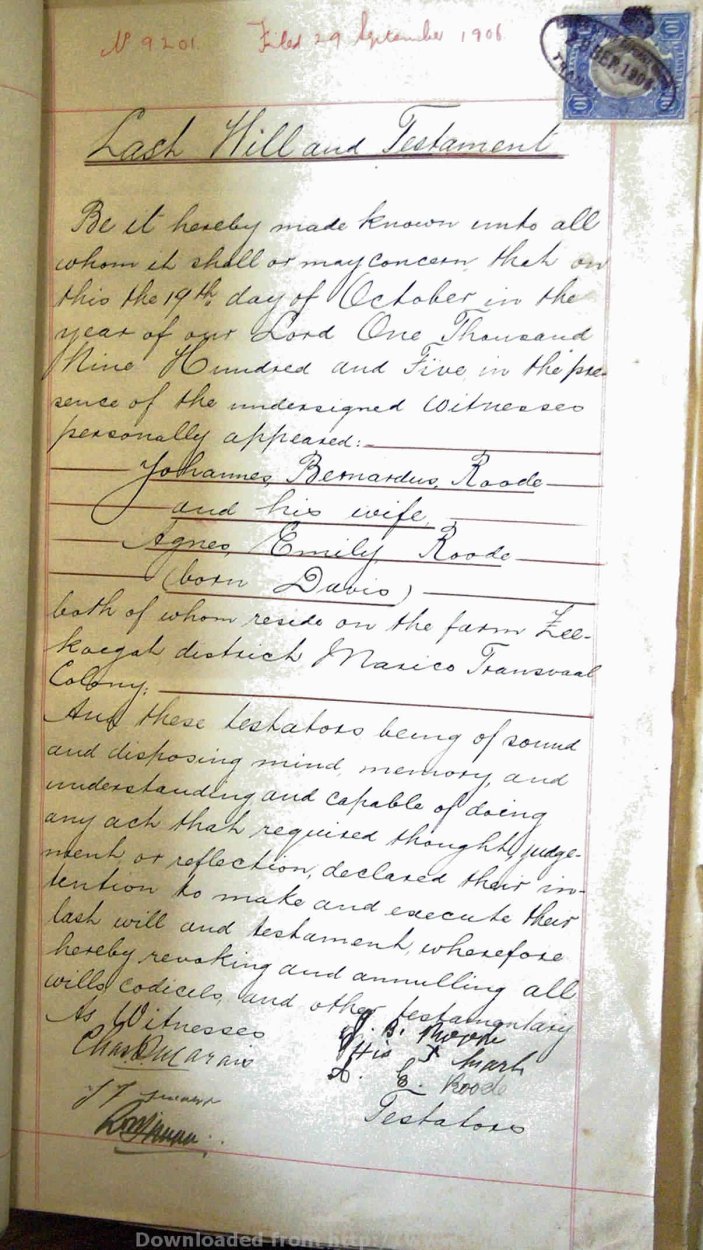 No 9201 Filed 29 September 1906
10 SEP. 1906 10
Last Will and Testament
Be it hereby made known unto all
whom it shall or may concern that on
this the 19th day of October in the
year of our Lord One Thousand
Nine Hundred and Five, in the pre-
sence of the undersigned Witnesses
personally appeared:
Johannes Bernardus Roode
and his wife
Agnes Emily Roode
(born Davis)
both of whom reside on the farm Zee-
koegat district Marico Transvaal
Colony:
And these testators being of sound
and disposing mind, memory, and
understanding and capable of doing
any act that required thought, judge-
ment or reflection, declared their in-
tention to make and execute their
last will and testament, wherefore
hereby revoking and annulling all
wills, codicils, and other testamentary
As Witnesses J. B. Roode
Chas Marais His + Mark
E. Roode
Testators
Downloaded from http://